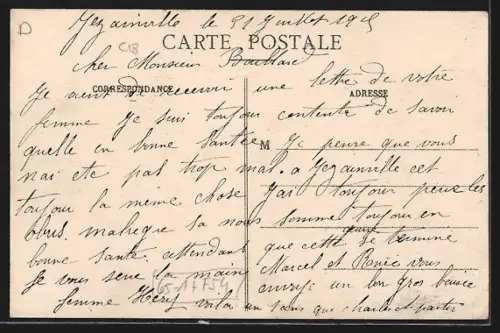 Jezainville le 31 Juillet 1915
D
CB
CARTE POSTALE
cher Monsieur Bailland
CORRESPONDANCE
ADRESSE
Je vient de recevoir une lettre de votre
femme Je suis toujour contente de savoir
quelle en bonne santée M Je pense que vous
nai ete pas trop mal. a Jezainville cet
toujour la même chose Jai toujour peur les
obus. malregre sa nous somme toujour en
bonne santé. attendant que cette guere se termine
Je vous sere la main Marcel et Renée vous
envoye un bon gros baisée
femme Hery voila un sous que charles et partir